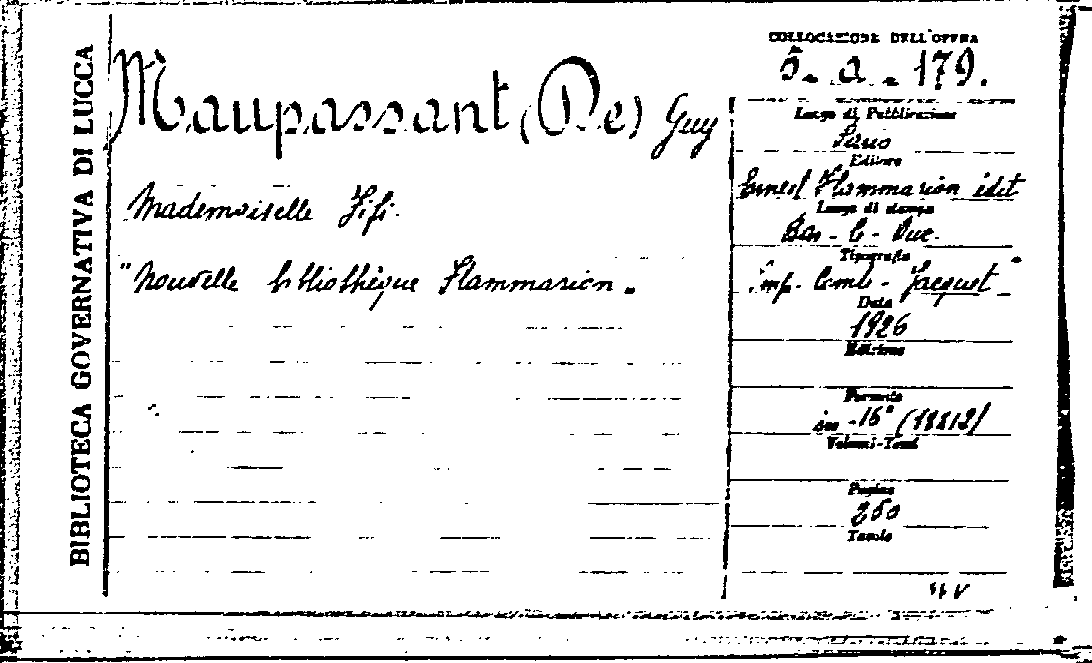 BIBLIOTECA GOVERNATIVA DI LUCCA
Maupassant (De) Guy
Mademoiselle Fifi.
"Nouvelle bibliothèque Flammarion.
COLLOCAZIONE DELL'OPERA
5 - a - 179.
Luogo di Pubblicazione
Editore
Ernest Flammarion édit
Luogo di stampa
Bar - le - Duc.
Tipografia
Imp. Comte - Jacquet
Data
1926
Edizione
Formato
in -16°
Volumi-Tomi
Pagine
250
Tavole